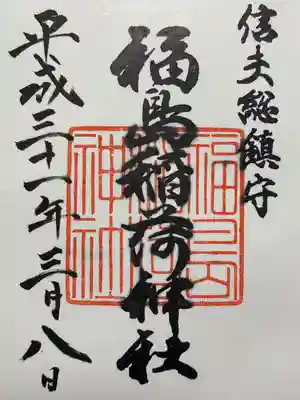 信夫総鎮守
福島稲荷神社
平成三十一年三月八日
福島
稲荷
神社